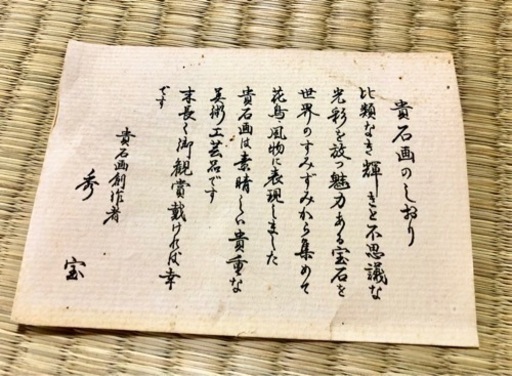 貴石画のしおり
比類なき輝きと不思議な
光彩を放つ魅力ある宝石を
世界のすみずみから集めて
花鳥風物に表現しました
貴石画は素晴しい貴重な
美術工芸品です
末長く御観賞戴ければ幸
です
貴石画創作者
秀宝